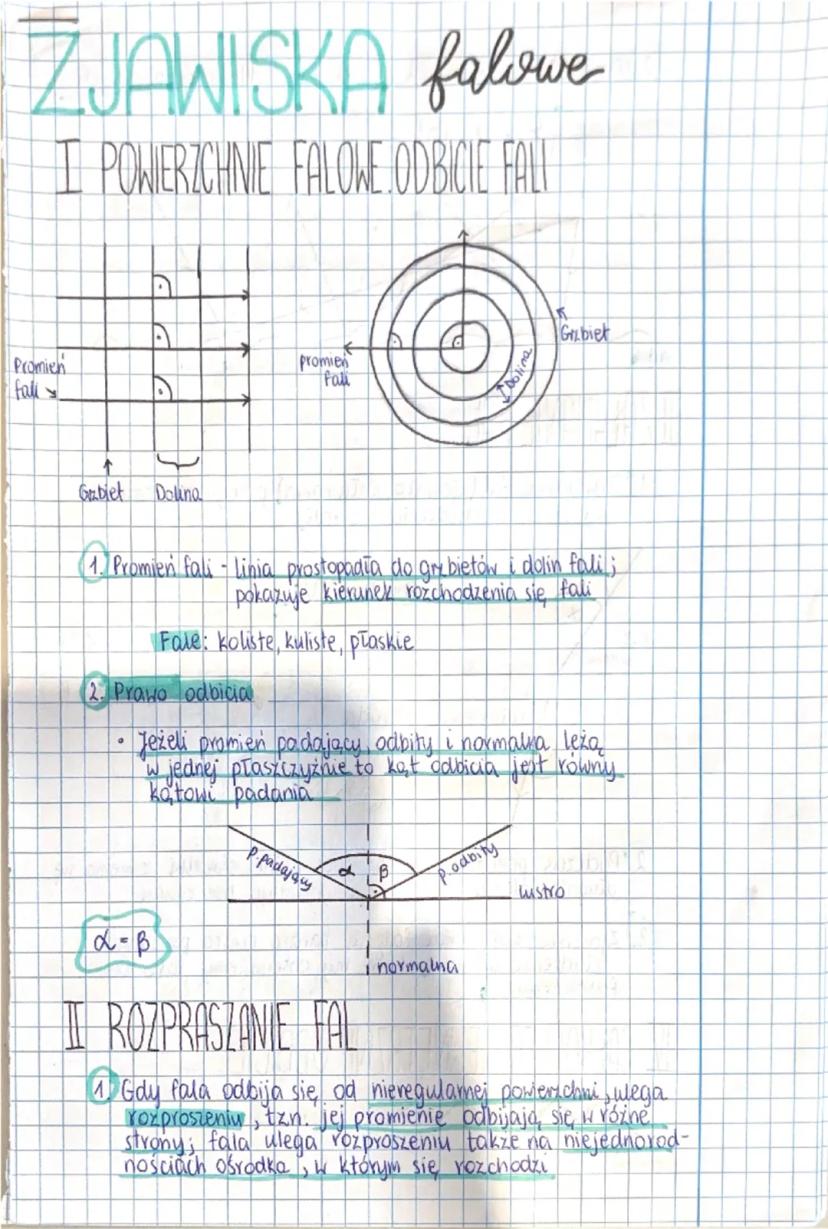 ZJAWISKA falowe
I POWIERZCHNIE FALOWE. ODBICIE FALI
Promień
fali
Grzbiet
Dolina
promień
fali
Grzbiet
Dolina
1. Promień fali - linia prostopadła do grzbietów i dolin fali;
pokazuje kierunek rozchodzenia się fali
Fale: koliste, kuliste, płaskie
2. Prawo odbicia
• Jeżeli promień padający, odbity i normalna leżą
w jednej płaszczyźnie to kąt odbicia jest równy
kątowi padania
p. padający
α
β
p. odbity
lustro
α = β
normalna
II ROZPRASZANIE FAL
1. Gdy fala odbija się od nieregularnej powierzchni, ulega
rozproszeniu, tzn. jej promienie odbijają się w różne
strony; fala ulega rozproszeniu także na niejednorod-
nościach ośrodka, w którym się rozchodzi